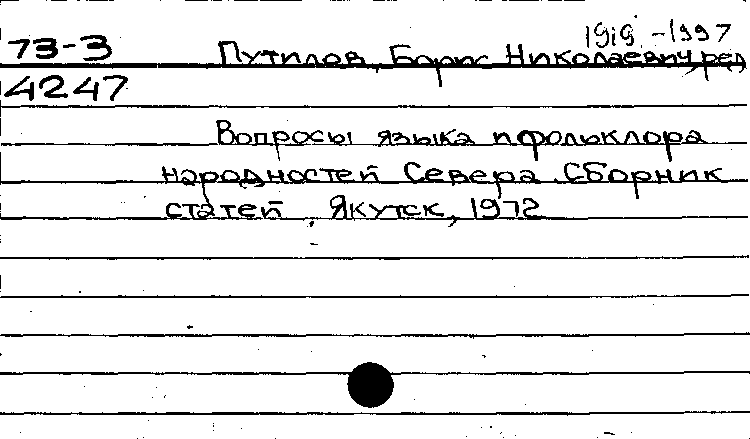 1919-1997
73-3 Путилов, Борис Николаевич, ред
4247
Вопросы языка и фольклора
народностей Севера. Сборник
статей. Якутск, 1972